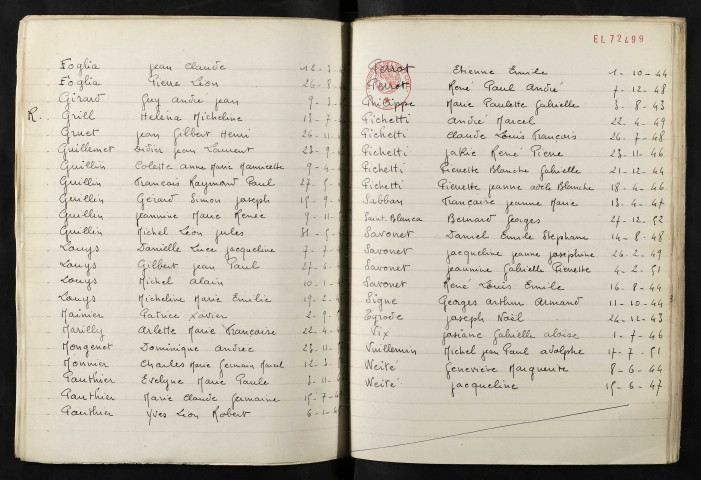 Foglia Jean Claude 12-3-
Foglia Pierre Léon 26-8-
Girard Guy André Jean 9-3-
R. Grill Helena Micheline 13-7-
Gruet Jean Gilbert Henri 26-11-
Guillemet Didier Jean Laurent 23-9-
Guillin Colette Anne Marie 9-4-
Guillin Francois Raymond Paul 27-5-
Guillin Gérard Simon Joseph 15-9-
Guillin Jeannine Marie Renée 9-11-
Guillin Michel Léon Jules 31-5-
Louys Danielle Luce Jacqueline 7-7-
Louys Gilbert Jean Paul 27-6-
Louys Michel Alain 10-1-
Louys Micheline Marie Emilie 19-2-
Mainier Patrice Xavier 2-9-
Marilly Arlette Marie Françoise 22-4-
Mongenet Dominique Andrée 23-11-
Monnier Charles Marie Germain Marcel 12-3-
Pauthier Evelyne Marie Paule 3-11-
Pauthier Marie Claude Germaine 15-7-
Pauthier Yves Léon Robert 6-1-
EL72499
Perrot Etienne Emile 1-10-44
Perrot René Paul André 7-12-48
Philippe Marie Paulette Gabrielle 3-8-43
Pichetti André Marcel 22-4-49
Pichetti Claude Louis François 26-7-48
Pichetti René Pierre 23-11-46
Pichetti Pierrette Blanche Gabrielle 21-12-44
Pichetti Pierrette Jeanne Adèle Blanche 18-4-46
Sabban Françoise Jeanne Marie 13-4-47
Saint Blanca Bernard Georges 27-12-52
Savonet Daniel Emile Stéphane 14-8-48
Savonet Jacqueline Jeanne Joséphine 26-2-49
Savonet Jeannine Gabrielle Pierrette 4-2-51
Savonet René Louis Emile 16-8-44
Signe Georges Arthur Armand 11-10-44
Joseph Noël 24-12-43
Vix Josiane Gabrielle 1-7-46
Vuillemin Michel Jean Paul Adolphe 17-7-51
Weité Geneviève Marguerite 8-6-44
Weité Jacqueline 15-6-47